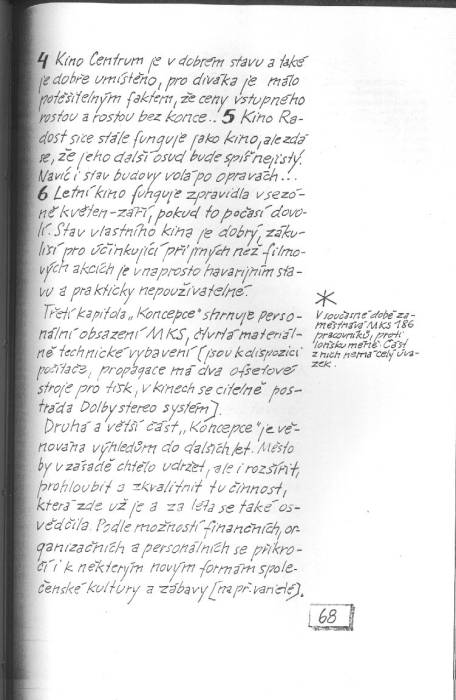 4 Kino Centrum je v dobrém stavu a také
je dobře umístěno, pro diváka je málo
potěšitelným faktem, že ceny vstupného
rostou a rostou bez konce... 5 Kino Ra-
dost sice stále funguje jako kino, ale zdá
se, že jeho další osud bude spíš nejistý.
Navíc i stav budovy volá po opravách...
6 Letní kino funguje zpravidla v sezó-
ně květen-září, pokud to počasí dovo-
lí. Stav vlastního kina je dobrý, záku-
lisí pro účinkující při jiných než filmo-
vých akcích je v naprosto havarijním sta-
vu a prakticky nepoužívatelné.
Třetí kapitola „Koncepce" shrnuje perso-
nální obsazení MKS, čtvrtá materiál-
ně technické vybavení (jsou k dispozici
počítače, propagace má dva ofsetové
stroje pro tisk, v kinech se citelně pos-
trádá Dolby stereo systém).
Druhá a větší část „Koncepce" je vě-
nována výhledům do dalších let. Město
by v zásadě chtělo udržet, ale i rozšířit,
prohloubit a zkvalitnit tu činnost,
která zde už je a za léta se také os-
vědčila. Podle možností finančních, or-
ganizačních a personálních se přikro-
čí i k některým novým formám spole-
čenské kultury a zábavy (např. varieté).
*
V současné době za-
městnává MKS 186
pracovníků, proti
lońsku méně. Část
z nich nemá celý úva-
zek.
68